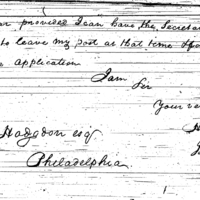 provided I can have the Secretar
to leave my post at that time
application
I am
Sir
Your
Hodgdon esqr
Philadelphia